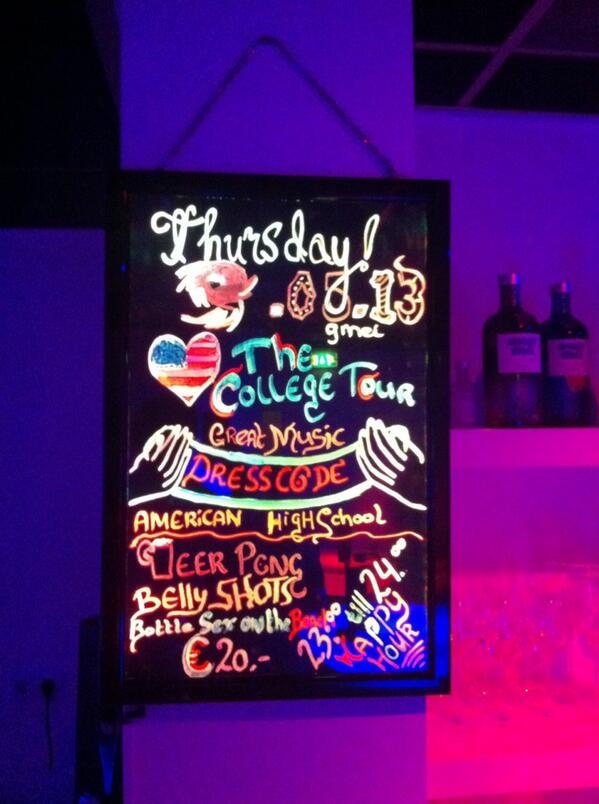 Thursday!
.05.13
The
College Tour
Great Music
DRESSCODE
AMERiCAN HigHSchool
BEER PONG
BELLY SHOTS
Bottle Sex on the Beach
€20,-
23.00 till 24.00
HAPPY
HOUR